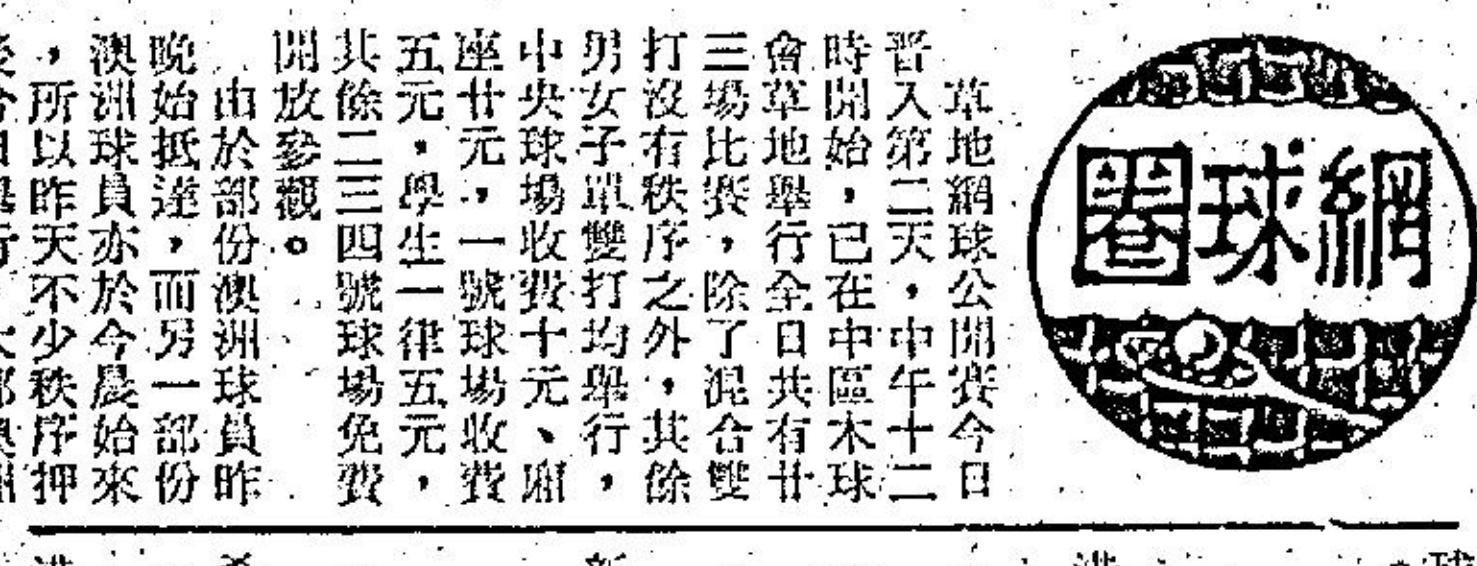 網球圈
草地網球公開賽今日
晋入第二天,中午十二
時開始,已在中區木球
會草地舉行全日共有廿
三場比賽,除了混合雙
打沒有秩序之外,其餘
男女子單雙打均舉行,
中央球場收費十元、廂
座廿元,一號球場收費
五元,學生一律五元,
其餘二三四號球場免費
開放參觀。
由於部份澳洲球員昨
晚始抵達,而另一部份
澳洲球員亦於今晨始來
,所以昨天不少秩序押